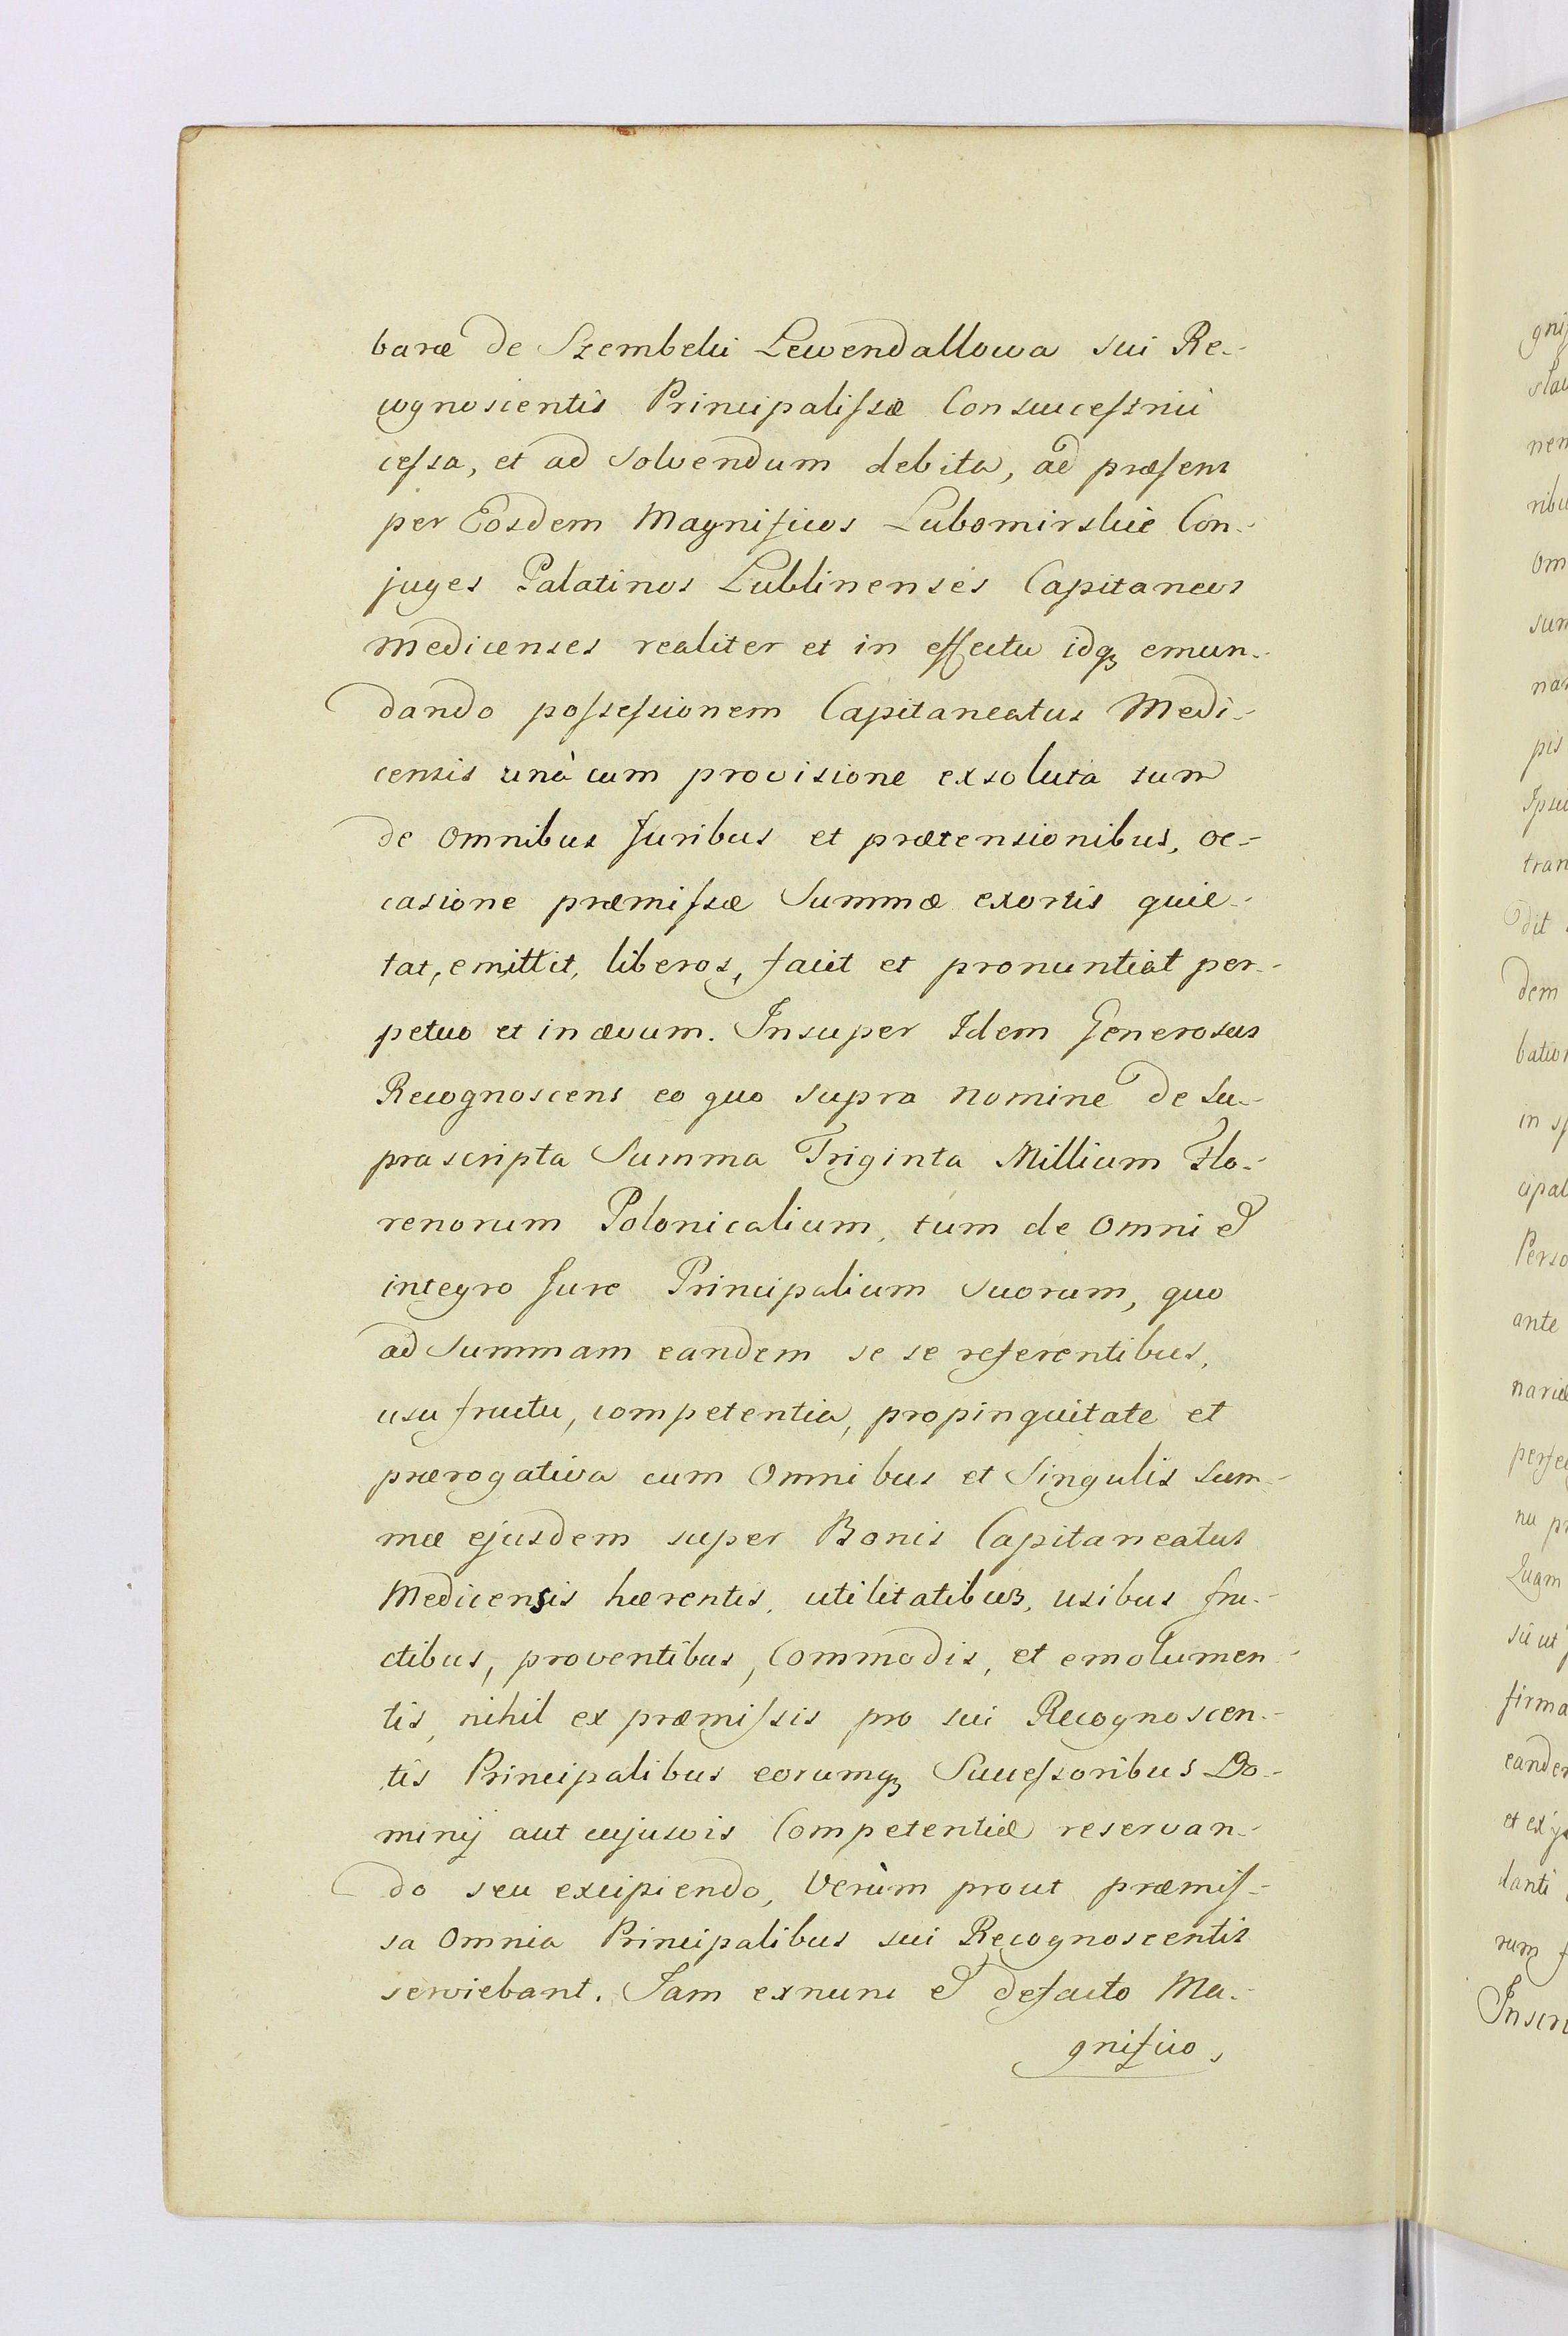 baræ de Szembeki Lewendallowa sui Re-
cognoscentis Principalissæ Consuccessrici
cessa, et ad solvendum debita, ad præsens
per Eosdem Magnificos Lubomirskie Con-
juges Palatinos Lublinenses Capitaneos
Medicenses realiter et in effectu idq3 emun-
dando possessionem Capitaneatus Medi-
censis unà cum provisione exsoluta tum
de omnibus Juribus et prætensionibus, oc-
casione præmissæ Summæ exortis quie-
tat, emittit, liberos, facit et pronuntiat per-
petuo et in ævum. Insuper Idem Generosus
Recognoscens eo quo supra nomine de su-
prascripta Summa Triginta Millium Flo-
renorum Polonicalium, tum de omni et
integro Jure Principalium suorum, quo
ad Summam eandem se se referentibus,
usu fructu, competentia, propinquitate et
prærogativa cum Omnibus et Singulis Sum-
mæ ejusdem super Bonis Capitaneatus
Medicensis hærentis, utilitatibus, usibus fru-
ctibus, proventibus, Commodis, et emolumen-
tis, nihil ex præmissis pro sui Recognoscen-
tis Principalibus eorumq3 Successoribus Do-
minij aut cujusvis Competentiæ reservan-
do seu excipiendo, Verùm prout præmis-
sa Omnia Principalibus sui Recognoscentis
serviebant. Jam exnunc et defacto Ma-
gnifico,